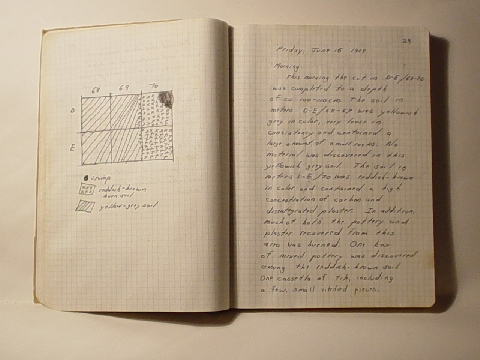 68 69 70
D
E
reddish-brown
yellow-grey soil
23
Friday, June 16 1989
Morning
This morning the cut in D-E/68-70
was completed to a depth
of The soil in
meters D-E/68-69 was yellowish
grey in color, very loose in
consistency and contained a
large amount of small rocks. No
material was discovered in this
yellowish grey soil. The soil in
meters D-E/70 was reddish-brown
in color and contained a high
concentration of carbon and
disintegrated plaster. In addition,
much of both the pottery and
plaster recovered from this
area was burned. One box
of mixed pottery was discovered
among the reddish-brown soil
One cassetta of including
a few, small vitrified pieces.